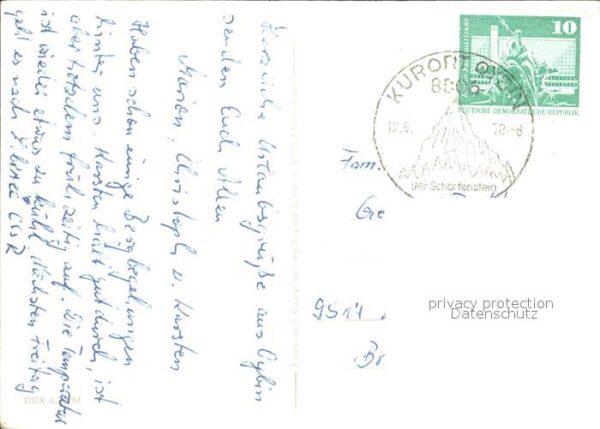 Herzliche Urlaubsgrüße aus Oybin
senden Euch Allen
Marion, Christoph u. Karsten
Haben schon einige Bergbegehungen
hinter uns. Karsten hält gut durch, ist
aber trotzdem frühzeitig auf. Die Temperatur
ist wieder etwas zu kühl. Nächsten Freitag
geht es nach
DDR M
Foto und Kunstverlag
10
DEUTSCHE DEMOKRATISCHE REPUBLIK
KURORT OYBIN
8806
12.6. 78-8
Der Scharfenstein
Fam.
Ge
9514
Br
privacy protection
Datenschutz